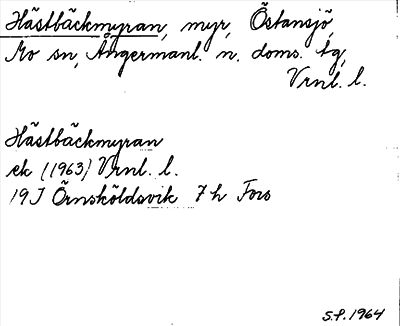 Hästbäckmyran, myr, Östansjö,
Mo sn, Ångermanl. n. doms. tg,
Vrnl. l.
Hästbäckmyran
ek (1963) Vrnl. l.
19J Örnsköldsvik 7h Fors
S.P. 1964